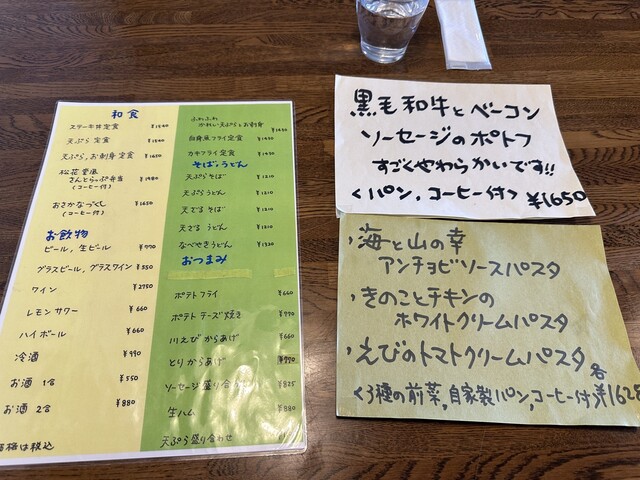 和食
ステーキ丼定食 ¥1540
天ぷら定食 ¥1540
天ぷら,お刺身定食 ¥1650
松花堂風
さんとらっぷ弁当 ¥1980
(コーヒー付)
おさかなづくし ¥1650
(コーヒー付)
お飲物
ビール,生ビール ¥770
グラスビール,グラスワイン ¥550
ワイン ¥2750
レモンサワー ¥660
ハイボール ¥660
冷酒 ¥990
お酒 1合 ¥550
お酒 2合 ¥880
価格は税込
ふわふわ
かれい天ぷらとお刺身 ¥1430
白身魚フライ定食 ¥1430
カキフライ定食 ¥1430
そば・うどん
天ぷらそば ¥1210
天ぷらうどん ¥1210
天ざるそば ¥1210
天ざるうどん ¥1210
なべやきうどん ¥1320
おつまみ
ポテトフライ ¥660
ポテトチーズ焼き ¥770
川えびからあげ ¥660
とりからあげ ¥770
ソーセージ盛り合 ¥825
生ハム ¥880
天ぷら盛り合わせ
黒毛和牛とベーコン
ソーセージのポトフ
すごくやわらかいです!!
<パン,コーヒー付> ¥1650
海と山の幸
アンチョビソースパスタ
きのことチキンの
ホワイトクリームパスタ
えびのトマトクリームパスタ 各
<3種の前菜,自家製パン,コーヒー付> ¥1628